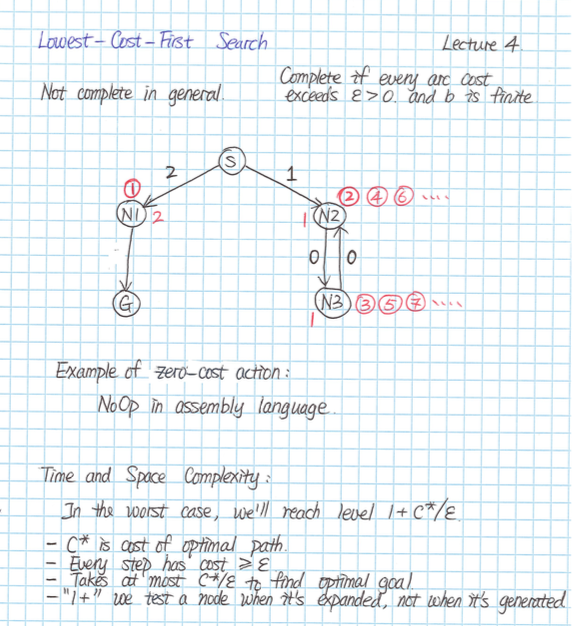 Lowest-Cost-First Search
Lecture 4
Not complete in general.
Complete if every arc cost
exceeds ε>0. and b is finite
S
2
1
①
N1
2
1
N2
② ④ ⑥ ....
0
0
G
N3
③ ⑤ ⑦ ....
1
Example of zero-cost action:
NoOp in assembly language.
Time and Space Complexity:
In the worst case, we'll reach level 1+C*/ε
- C* is cost of optimal path.
- Every step has cost ⩾ ε
- Takes at most C*/ε to find optimal goal
- "1+" we test a node when it's expanded, not when it's generated